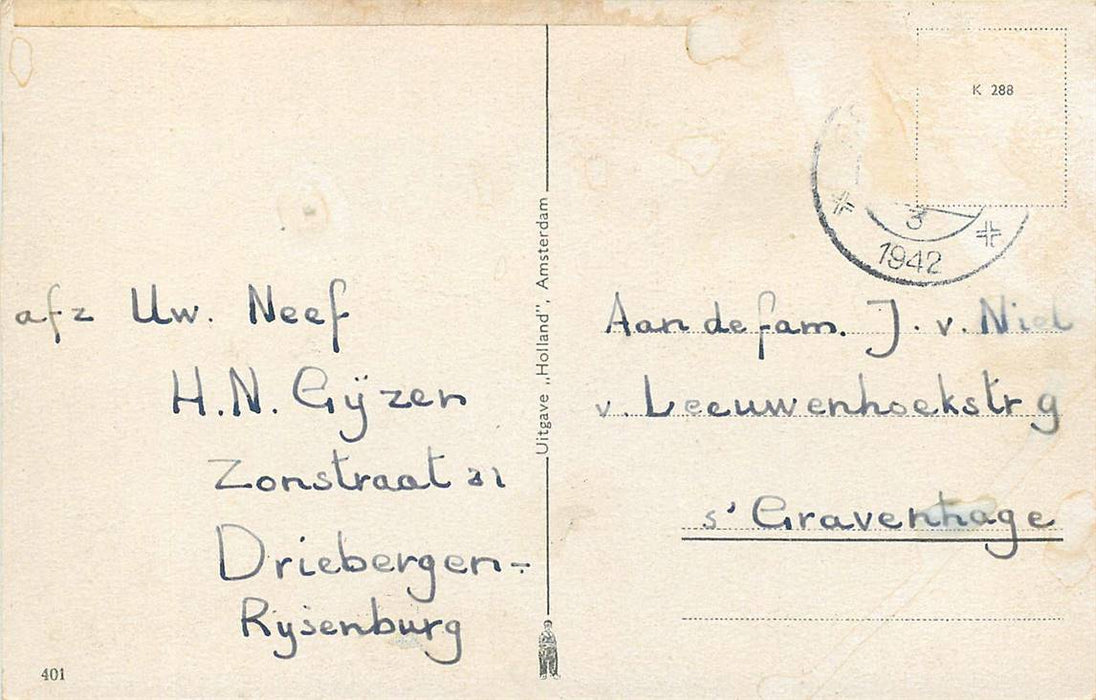 afz Uw. Neef
H.N. Gijzen
Zonstraat 21
Driebergen-
Rijsenburg
401
Uitgave „Holland”, Amsterdam
K 288
3
1942
Aan de fam. J. v. Niel
v. Leeuwenhoekstr 9
s' Gravenhage